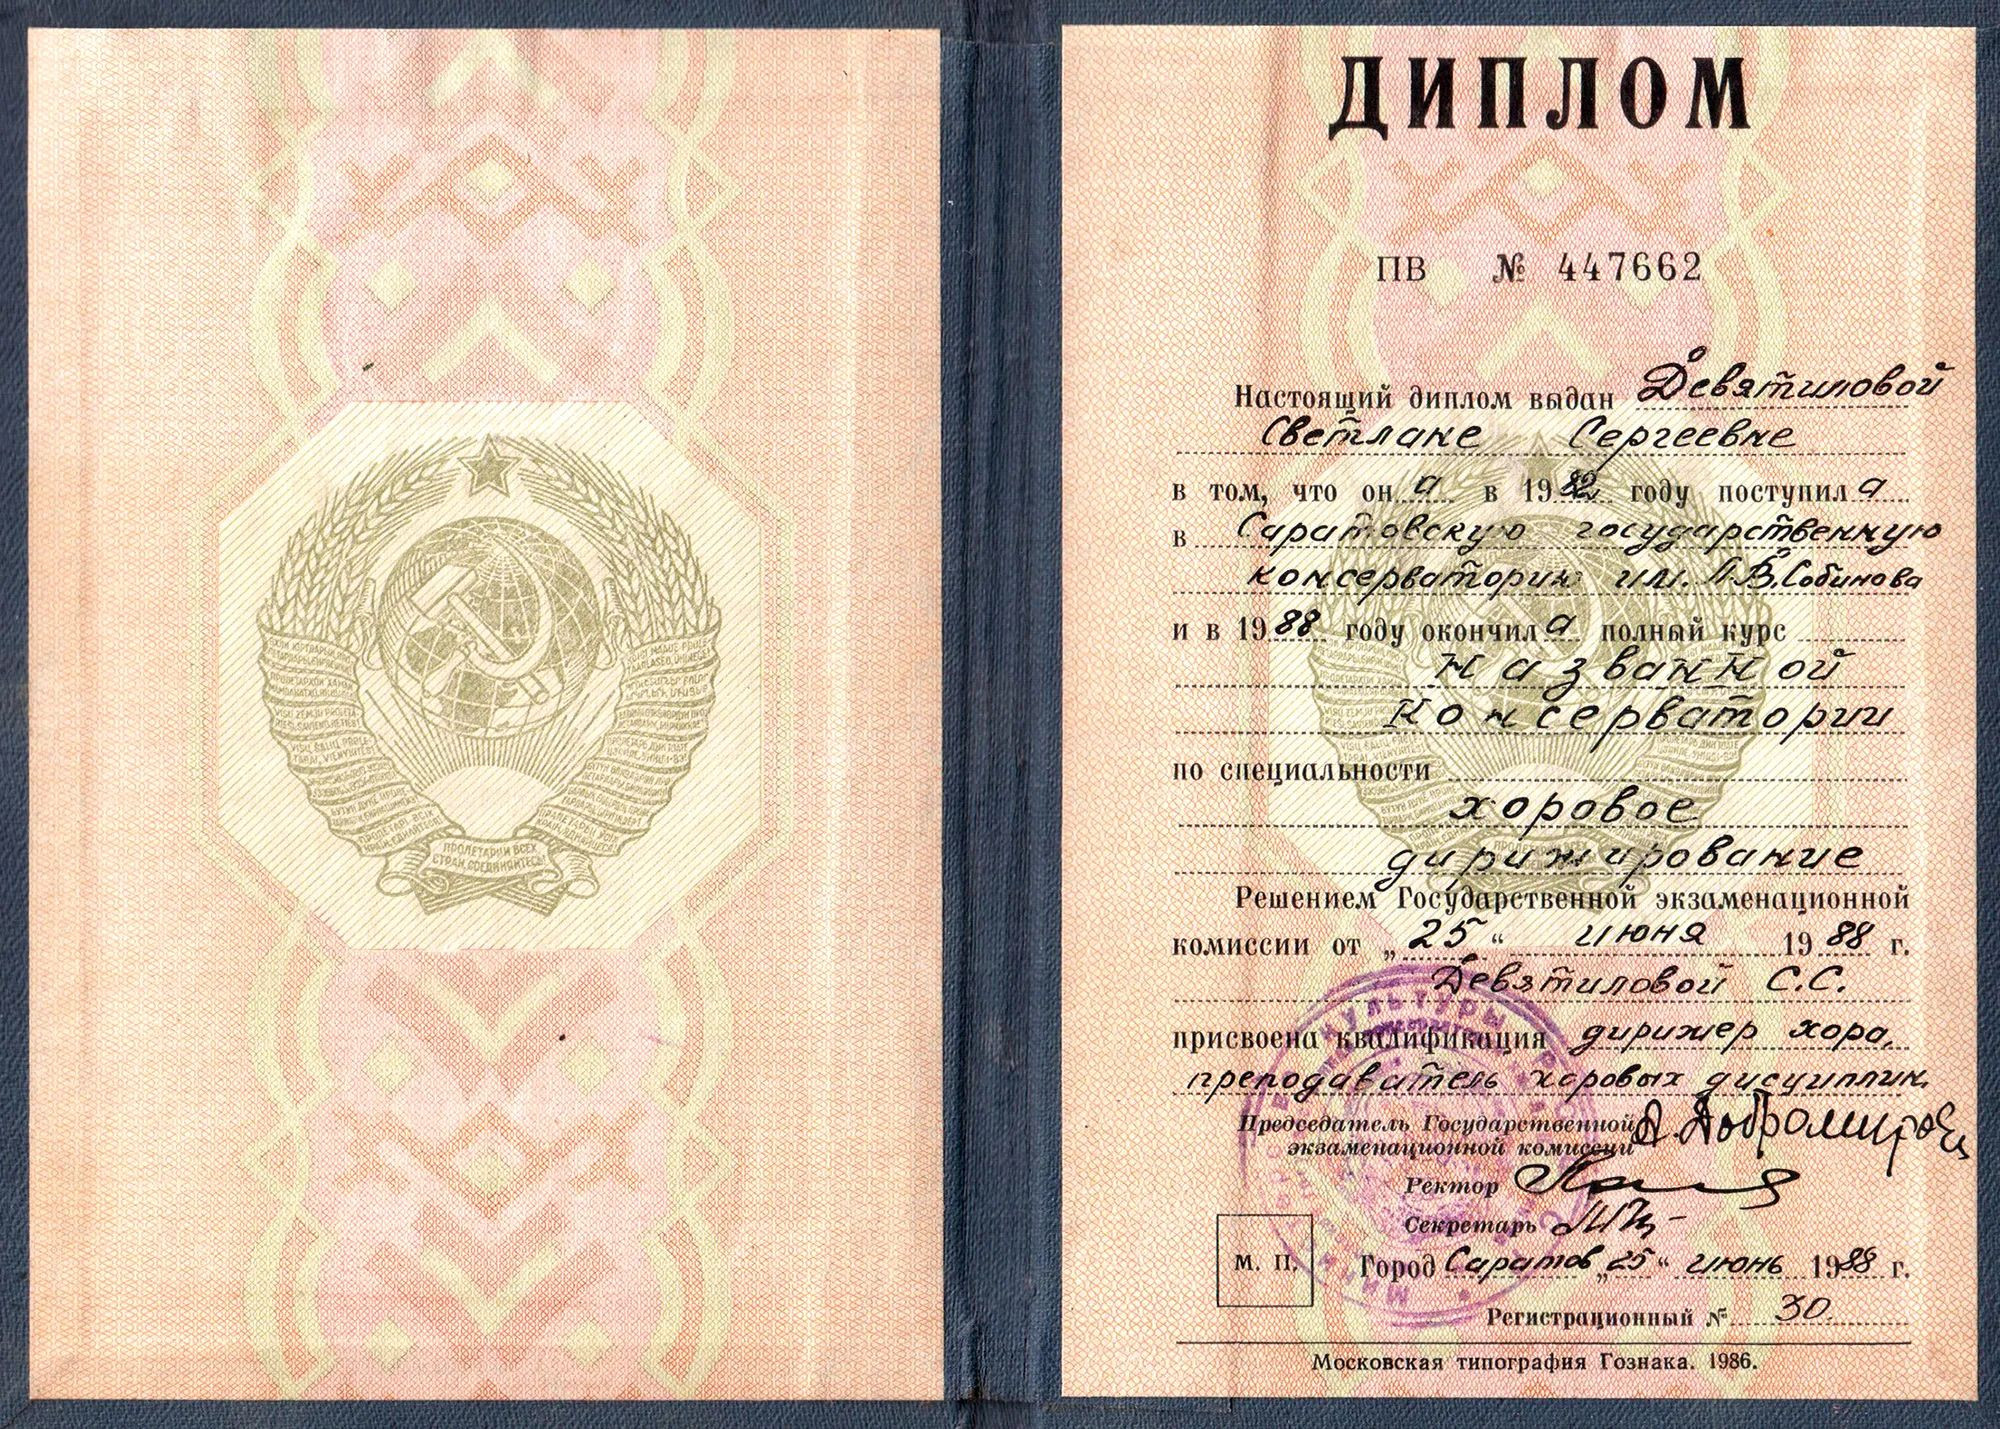 ПРОЛЕТАРИИ ВСЕХ
СТРАН, СОЕДИНЯЙТЕСЬ!
ДИПЛОМ
ПВ № 447662
Настоящий диплом выдан Девятиловой
Светлане Сергеевне
в том, что он а в 1982 году поступил а
в Саратовскую государственную
консерваторию им. Л.В.Собинова
и в 1988 году окончил а полный курс
названной
консерватории
по специальности
хоровое
дирижирование
Решением Государственной экзаменационной
комиссии от „25“ июня 1988 г.
Девятиловой С.С.
присвоена квалификация дирижер хора,
преподаватель хоровых дисциплин
Председатель Государственной
экзаменационной комиссии
Ректор
Секретарь
М. П. Город Саратов „25“ июнь 1988 г.
Регистрационный № 30.
Московская типография Гознака. 1986.